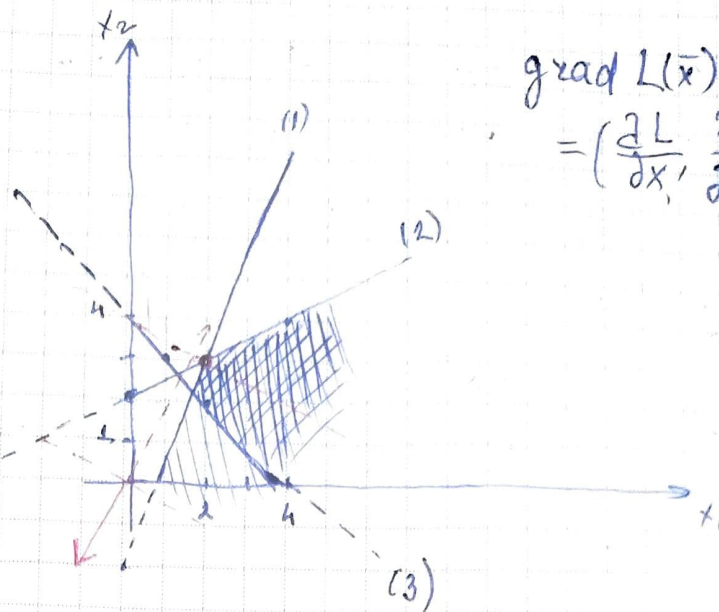 x₂
grad L(x̄)
= (∂L/∂x₁,
(1)
(2)
4
1
2
4
x
(3)